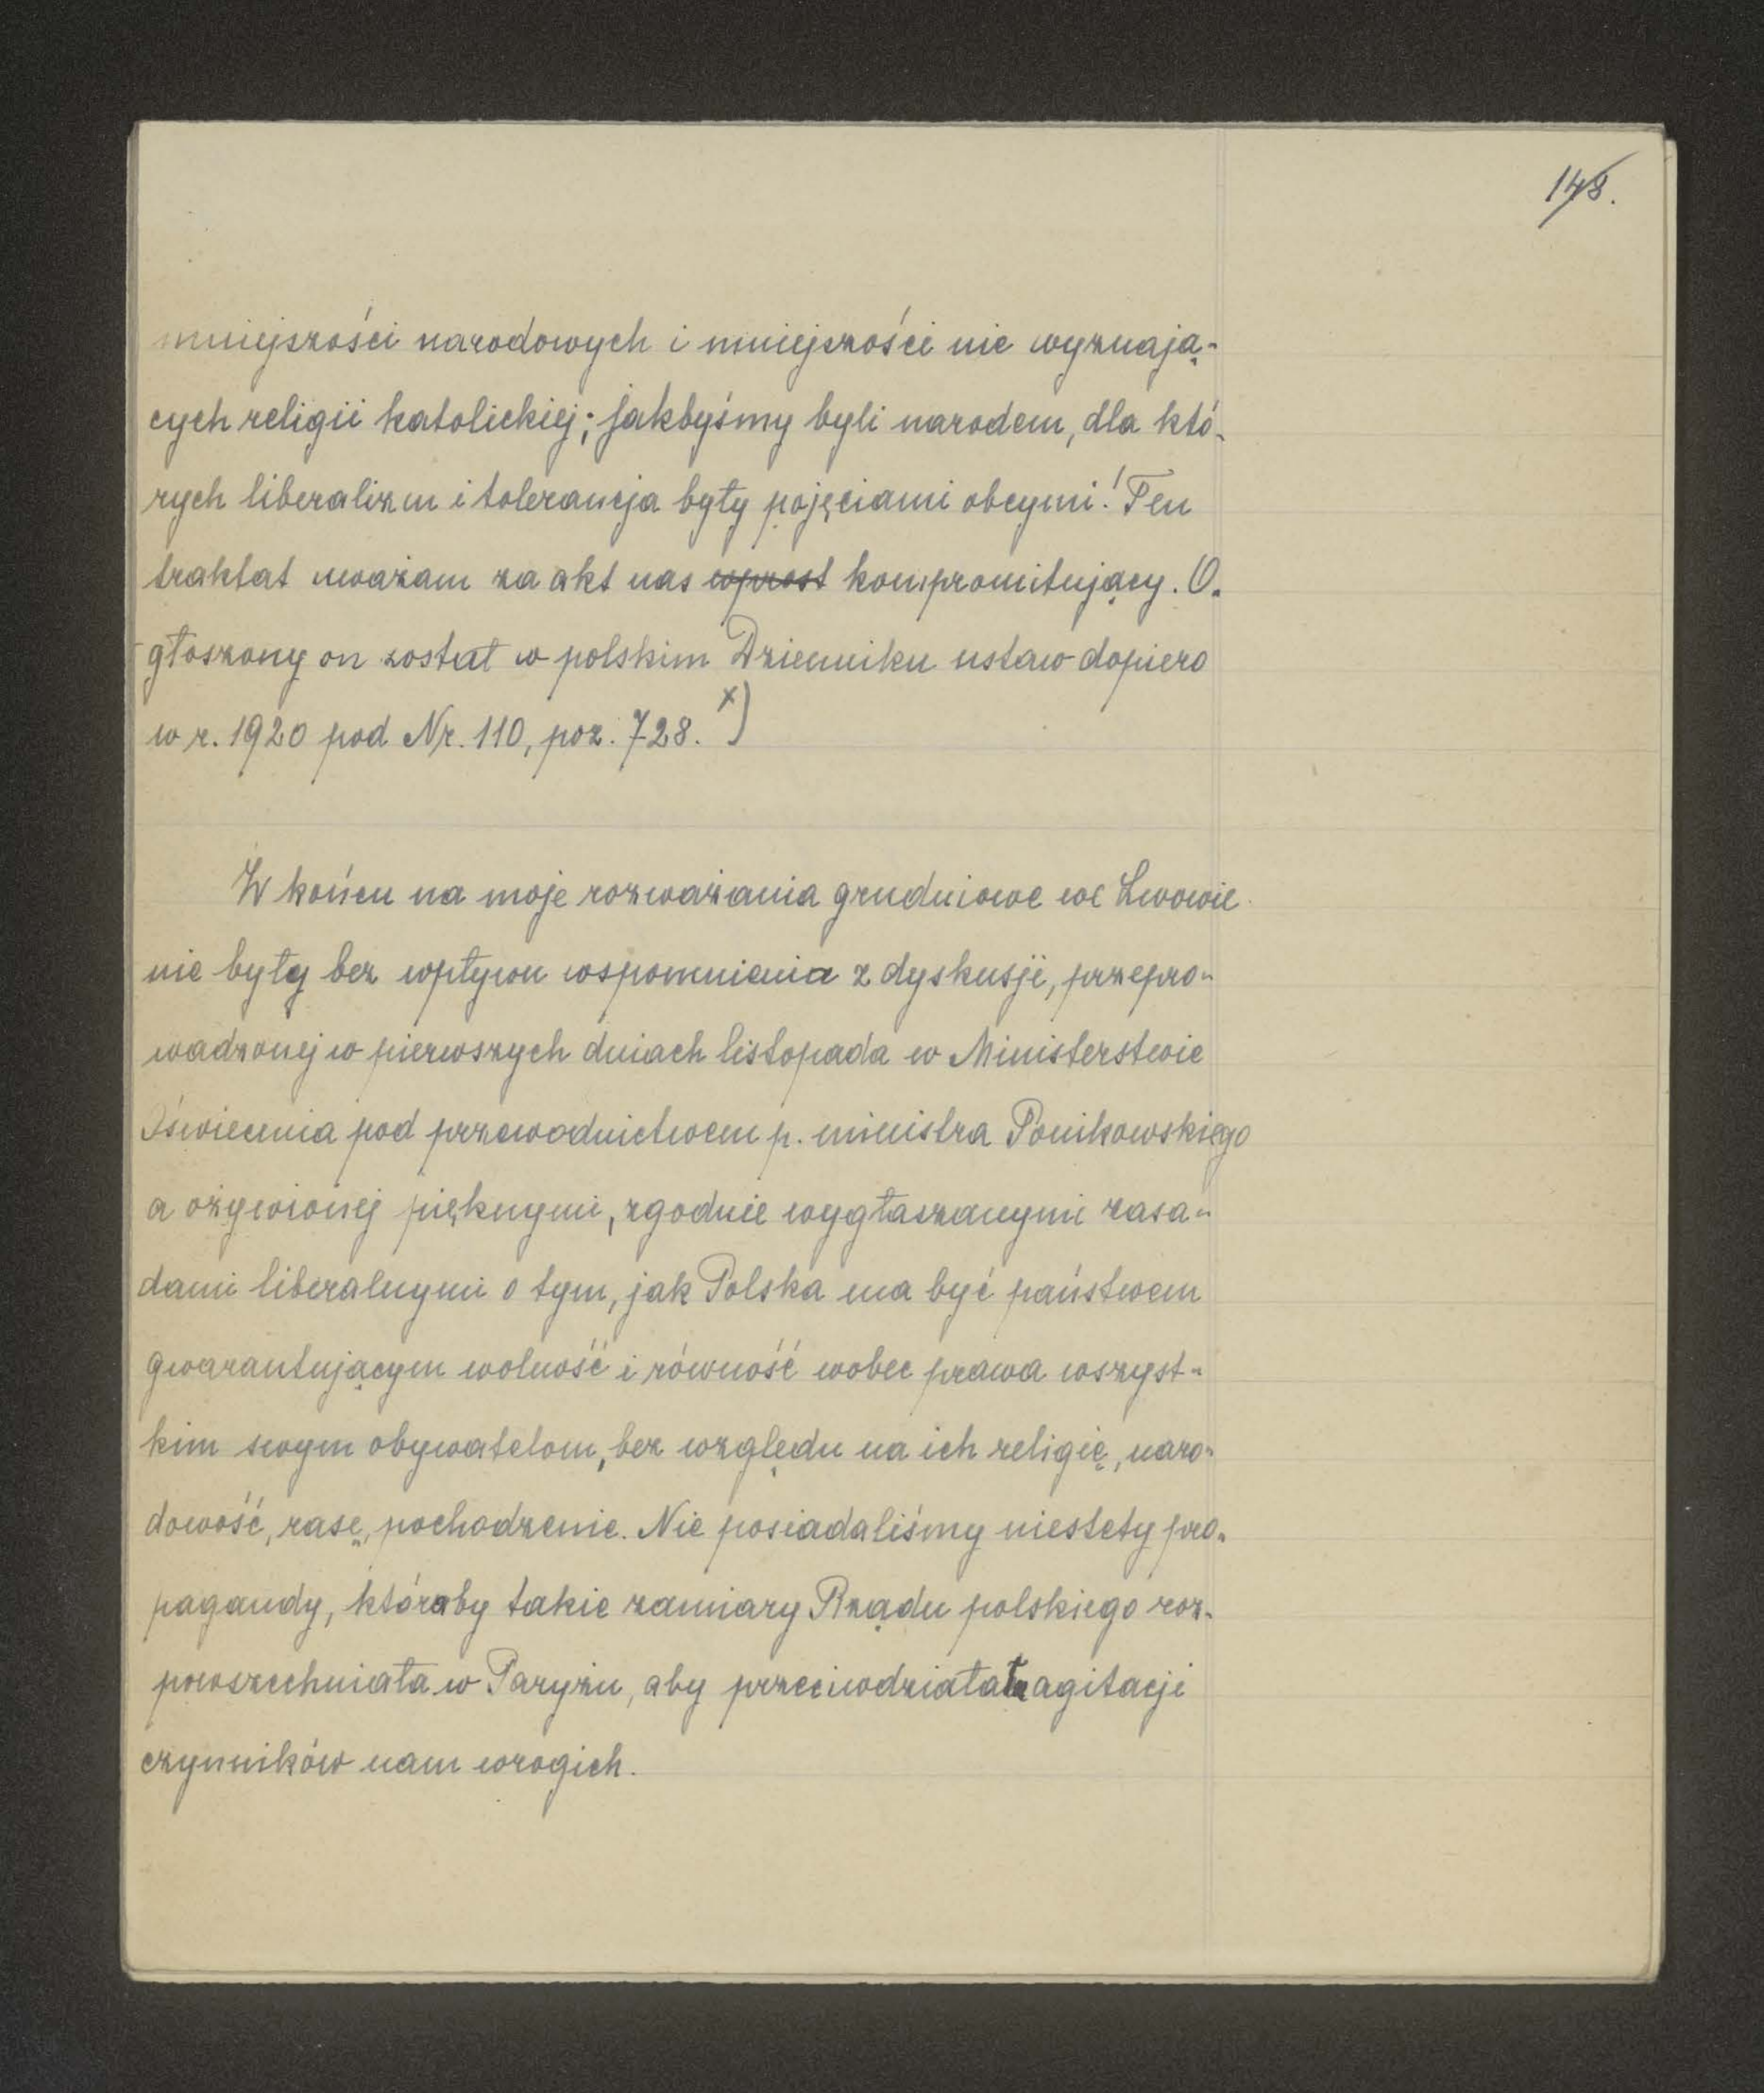 148.
mniejszości narodowych i mniejszości nie wyznają-
cych religii katolickiej; jakbyśmy byli narodem, dla któ-
rych liberalizm i tolerancja były pojęciami obcymi! Ten
traktat uważam za akt nas wprost kompromitujący. O-
głoszony on został w polskim Dzienniku ustaw dopiero
w r. 1920 pod Nr. 110, poz. 728. x)
W końcu na moje rozważania grudniowe we Lwowie
nie były bez wpływu wspomnienia z dyskusji, przepro-
wadzonej w pierwszych dniach listopada w Ministerstwie
Oświecenia pod przewodnictwem p. ministra Ponikowskiego
a ożywionej pięknymi, zgodnie wygłaszanymi zasa-
dami liberalnymi o tym, jak Polska ma być państwem
gwarantującym wolność i równość wobec prawa wszyst-
kim swym obywatelom, bez względu na ich religię, naro-
dowość, rasę, pochodzenie. Nie posiadaliśmy niestety pro-
pagandy, któraby takie zamiary Rządu polskiego roz-
powszechniała w Paryżu, aby przeciwdziałała agitacji
czynników nam wrogich.